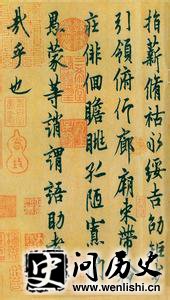 指薪脩祜永綏吉劭矩
引領俯仰廊廟束帶
莊俳佪瞻眺孤陋寡
愚蒙等誚謂語助者
哉乎也
问历史
www.wenlishi.com